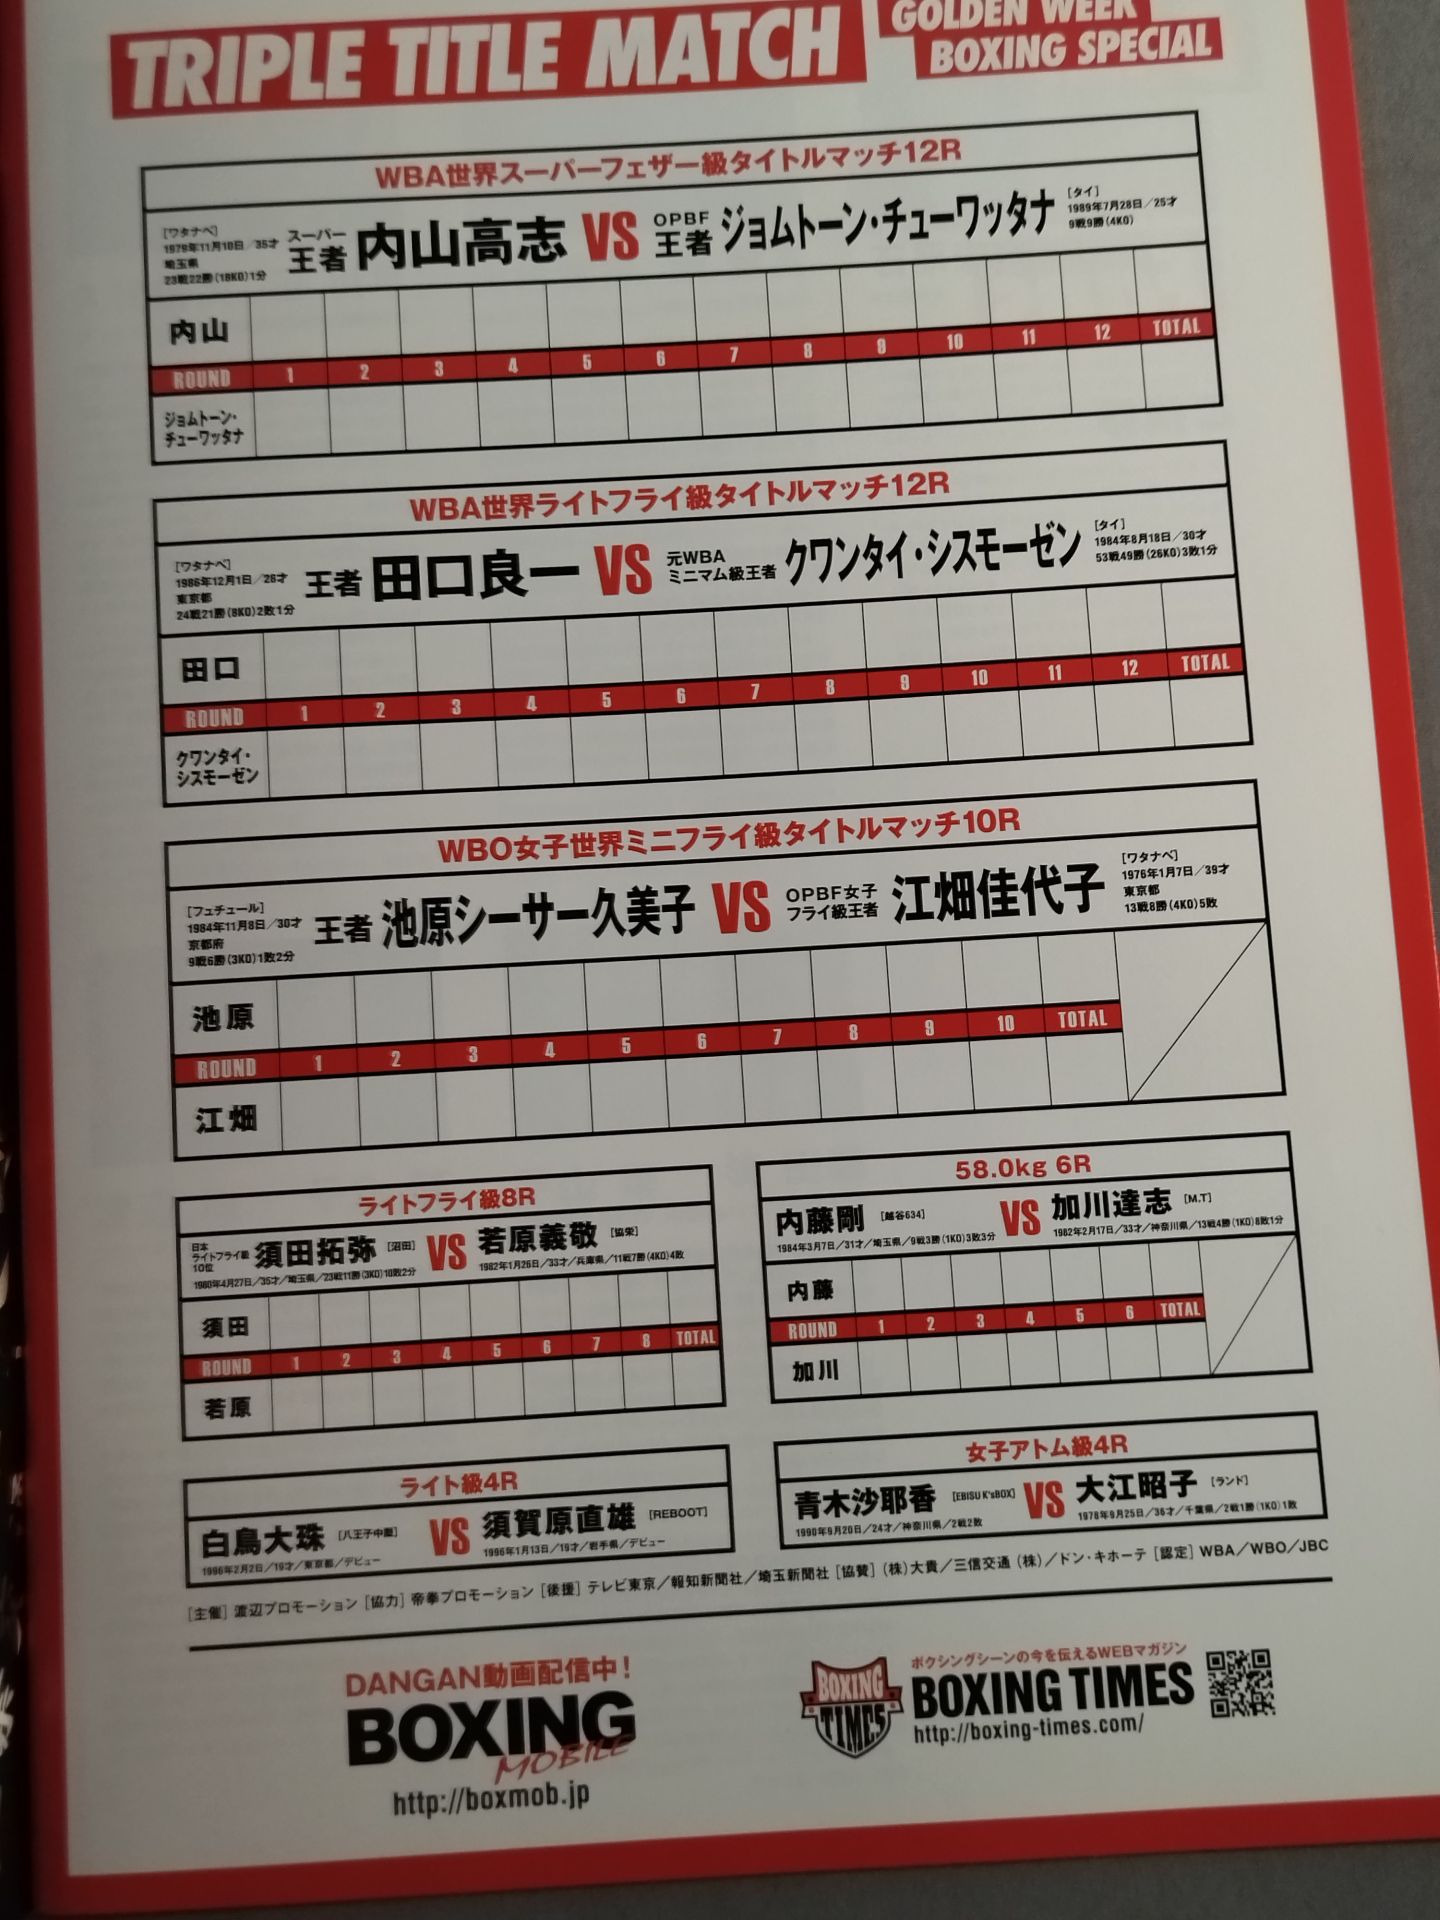 TRIPLE TITLE MATCH
GOLDEN WEEK
BOXING SPECIAL
WBA世界スーパーフェザー級タイトルマッチ12R
[ワタナベ]
1979年11月10日/35才
埼玉県
23戦22勝(18KO)1分
スーパー
王者
内山高志
VS
OPBF
王者
ジョムトーン・チューワッタナ
[タイ]
1989年7月28日/25才
9戦9勝(4KO)
内山
ROUND 1 2 3 4 5 6 7 8 9 10 11 12 TOTAL
ジョムトーン・
チューワッタナ
WBA世界ライトフライ級タイトルマッチ12R
[ワタナベ]
1986年12月1日/28才
東京都
24戦21勝(8KO)2敗1分
王者 田口良一
VS
元WBA
ミニマム級王者
クワンタイ・シスモーゼン
[タイ]
1984年8月18日/30才
53戦49勝(26KO)3敗1分
田口
ROUND 1 2 3 4 5 6 7 8 9 10 11 12 TOTAL
クワンタイ・
シスモーゼン
WBO女子世界ミニフライ級タイトルマッチ10R
[フュチュール]
1984年11月8日/30才
京都府
9戦6勝(3KO)1敗2分
王者 池原シーサー久美子
VS
OPBF女子
フライ級王者
江畑佳代子
[ワタナベ]
1976年1月7日/39才
東京都
13戦8勝(4KO)5敗
池原
ROUND 1 2 3 4 5 6 7 8 9 10 TOTAL
江畑
ライトフライ級8R
日本
ライトフライ級
10位
須田拓弥 [沼田]
VS
若原義敬 [協栄]
1980年4月27日/35才/埼玉県/23戦11勝(3KO)10敗2分
1982年1月26日/33才/兵庫県/11戦7勝(4KO)4敗
須田
ROUND 1 2 3 4 5 6 7 8 TOTAL
若原
58.0kg 6R
内藤剛 [越谷634]
VS
加川達志 [M.T]
1984年3月7日/31才/埼玉県/9戦3勝(1KO)3敗3分
1982年2月17日/33才/神奈川県/13戦4勝(1KO)8敗1分
内藤
ROUND 1 2 3 4 5 6 TOTAL
加川
ライト級4R
白鳥大珠 [八王子中屋]
VS
須賀原直雄 [REBOOT]
1996年2月2日/19才/東京都/デビュー
1996年1月13日/19才/岩手県/デビュー
女子アトム級4R
青木沙耶香 [EBISU K'sBOX]
VS
大江昭子 [ランド]
1990年9月20日/24才/神奈川県/2戦2敗
1978年9月25日/36才/千葉県/2戦1勝(1KO)1敗
[主催] 渡辺プロモーション [協力] 帝拳プロモーション [後援] テレビ東京/報知新聞社/埼玉新聞社 [協賛] (株)大貴/三信交通(株)/ドン・キホーテ [認定] WBA/WBO/JBC
DANGAN動画配信中!
BOXING
MOBILE
http://boxmob.jp
BOXING
TIMES
ボクシングシーンの今を伝えるWEBマガジン
BOXING TIMES
http://boxing-times.com/